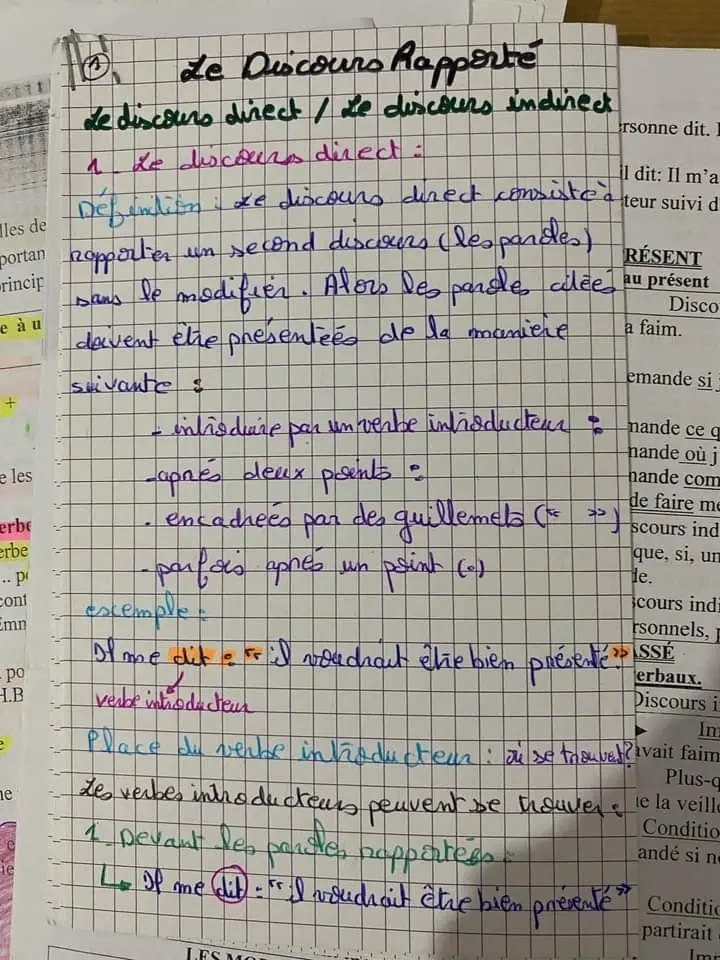 1
Le Discours Rapporté
Le discours direct / Le discours indirect
1. Le discours direct :
Définition : Le discours direct consiste à
rapporter un second discours (les paroles)
sans le modifier. Alors les paroles citées
doivent être présentées de la manière
suivante :
- introduire par un verbe introducteur :
- après deux points :
- encadrées par des guillemets (« »)
- parfois après un point (.)
exemple :
Il me dit : « il voudrait être bien présenté. »
verbe introducteur
Place du verbe introducteur : où se trouve?
Les verbes introducteurs peuvent se trouver :
1. Devant les paroles rapportées :
Il me dit : « il voudrait être bien présenté »
lles de
portan
princip
e à u
+
e les
erbe
erbe
cont
po
H.B
e
ne
rsonne dit.
l dit: Il m'a
teur suivi d
RÉSENT
au présent
Disco
a faim.
emande si j
mande ce q
mande où j
mande com
de faire me
scours ind
que, si, un
le.
scours indi
rsonnels,
ASSÉ
erbaux.
Discours i
Im
avait faim
Plus-q
e la veille
Conditio
andé si n
Conditio
partirait
Im
LES MO